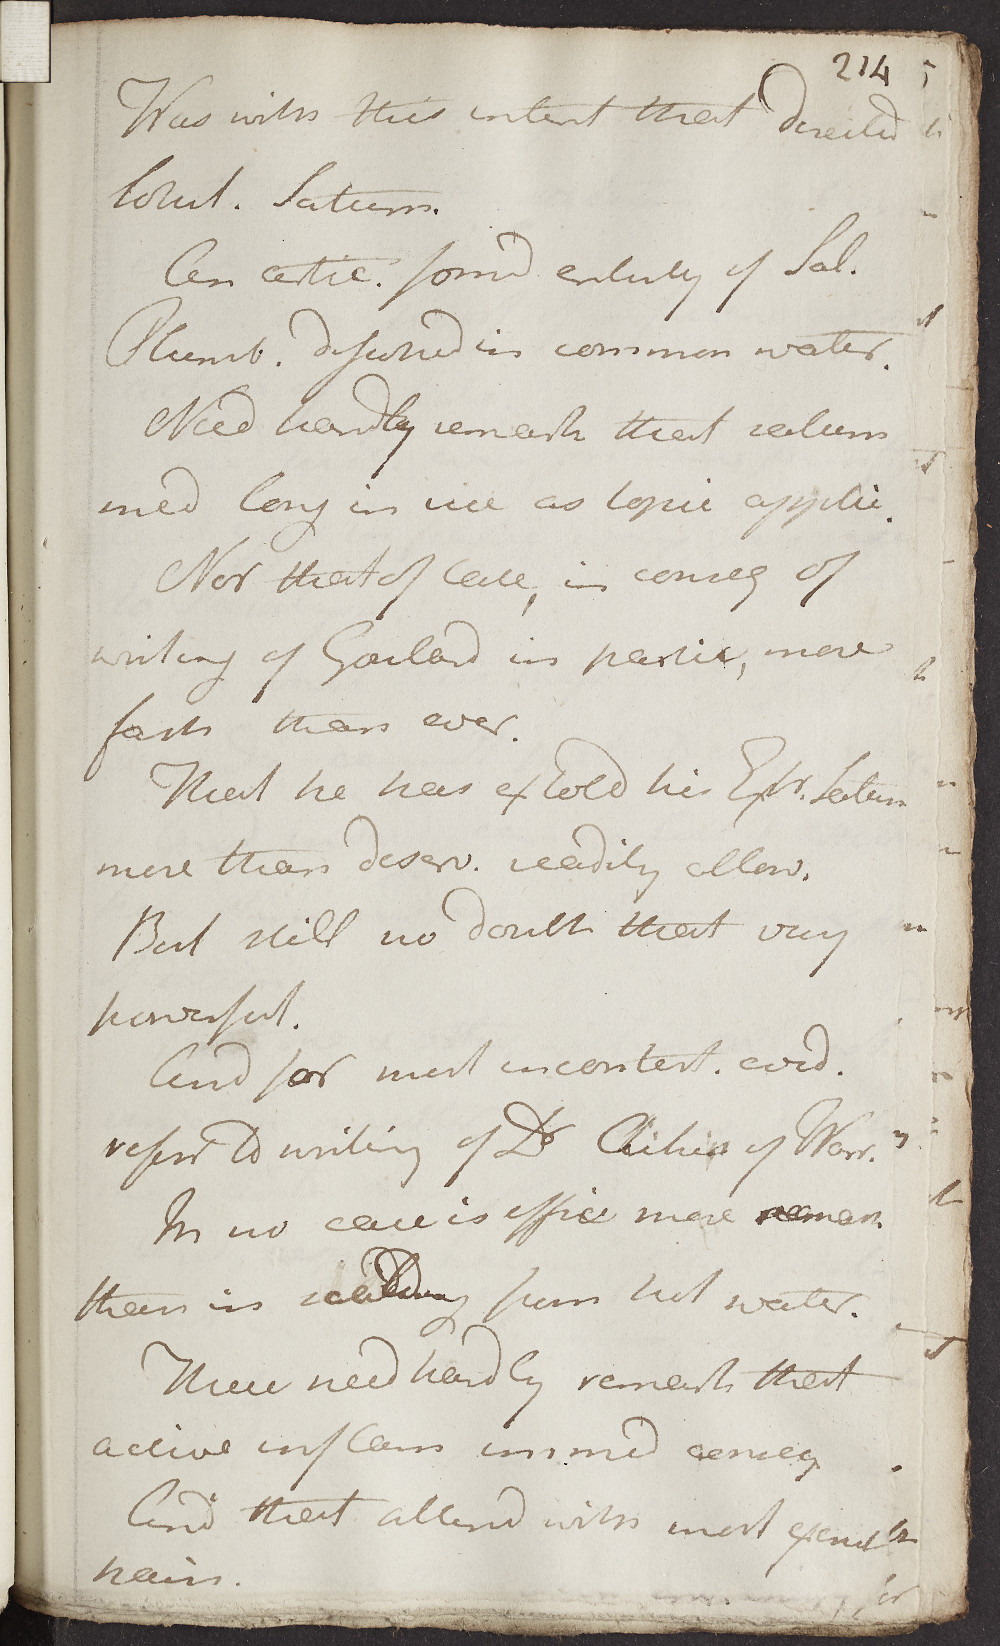 214
Was with this intent that directed
Solut. Saturn.
An artic. form'd entirely of Sal.
Plumb. dissolved in common water.
Need hardly remark that saturn
med long in use as topic applic.
Nor that of late, in conseq of
writing of Goulard in partic, more
fash than ever.
That he has extold his Extr. Saturn
more than deserv. readily allow.
But still no doubt that very
powerful.
And for most incontest. evid.
refer to writing of Dr Aikin of Warr.
In no case is effic more remar.
than in scalding from hot water.
There need hardly remark that
active inflam immed conseq
And that attend with most exquis
pain.